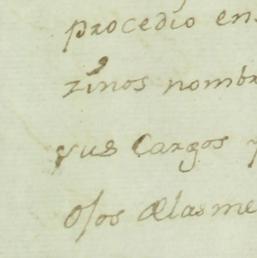 procedio en
rinos nombr
sus Cargos
ojos delasme